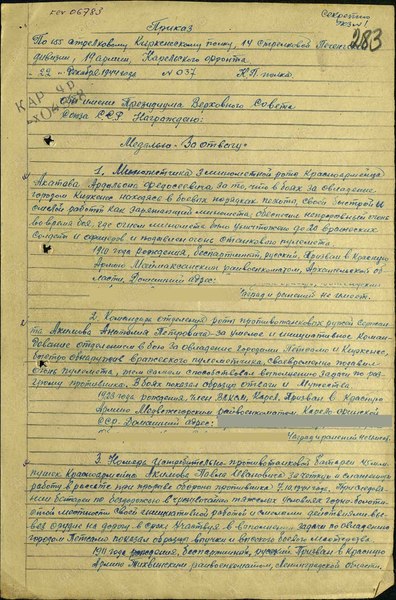 Секретно
экз №1
283
Приказ
По 155 стрелковому Киркенесскому полку, 14 стрелковой
дивизии, 19 армии, Карельского фронта
22 декабря 1944 года № 037 КП полка
От имени Президиума Верховного Совета
Союза ССР Награждаю:
Медалью „За отвагу"
1. Минометчика 3 минометной роты Красноармейца
Федосеевича за то, что в боях за овладение
городом Киркенес находясь в боевых порядках пехоты, своей быстрой и
смелой работой как заряжающий миномета, обеспечил непрерывный огонь
во время боя, где огнем миномета было уничтожено до 20 вражеских
солдат и офицеров и подавлен огонь станкового пулемета.
1910 года рождения, беспартийный, русский. Призван в Красную
Армию Маймаксанским райвоенкоматом, Архангельской об-
ласти. Домашний адрес:
Наград и ранений не имеет.
2. Командира отделения роты противотанковых ружей Сержан-
та Акимова Анатолия Петровича за умелое и инициативное коман-
дование отделением в бою за овладение городами Петсамо и Киркенес,
быстро обнаружив вражеского пулеметчика, своевременно подавил
огонь пулемета, тем самым способствовал выполнению задачи по раз-
грому противника. В боях показал образцы отваги и мужества
1923 года рождения. Член ВЛКСМ, Карел. Призван в Красную
Армию Медвежьегорским райвоенкоматом Карело финской
ССР. Домашний адрес:
Наград и ранений не имеет.
3. Номера истребительно-противотанковой батареи 45 мм
пушек Красноармейца Акимова Павла Ивановича за четкую и слаженную
работу в расчете при прорыве обороны противника 7.10.1944 года. Преследова-
нии батареи по бездорожью в тяжелых условиях горно болоти-
стой местности своей инициативной работой и смелыми действиями вы-
вел орудие на дорогу в срок. Участвуя в выполнении задачи по овладению
городом Петсамо показал образцы выучки и высокого боевого мастерства.
1911 года рождения, беспартийный, русский. Призван в Красную
Армию Тихвинским райвоенкоматом, Ленинградской области.